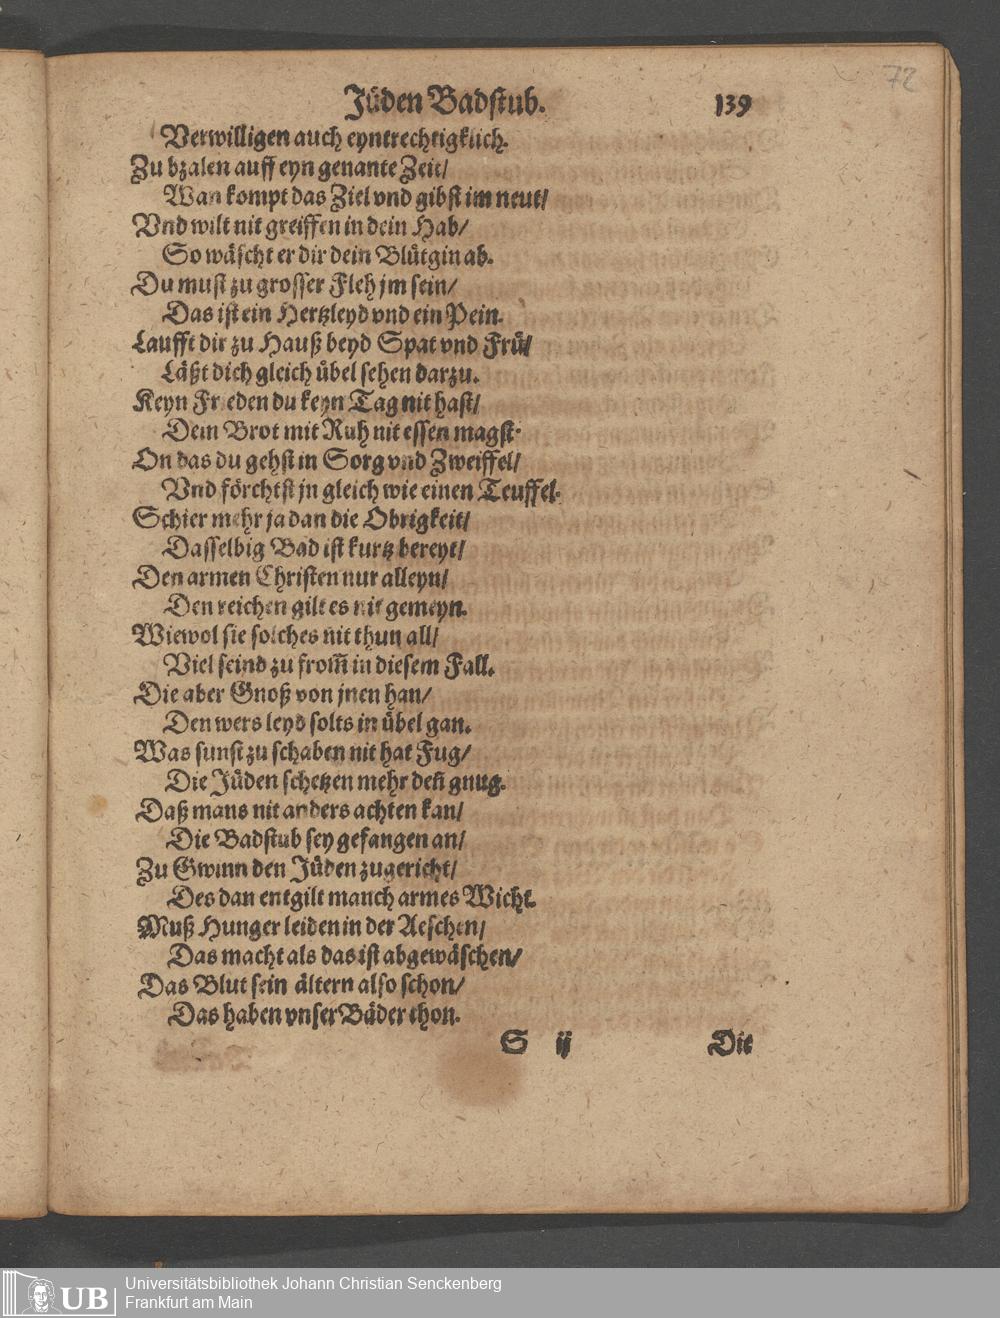 72
Jüden Badstub. 139
Verwilligen auch eyntrechtigklich.
Zu bzalen auff eyn genante Zeit/
Wan kompt das Ziel vnd gibst im neut/
Vnd wilt nit greiffen in dein Hab/
So wäscht er dir dein Blütgin ab.
Du must zu grosser Fleh jm sein/
Das ist ein Hertzleyd vnd ein Pein.
Laufft dir zu Hauß beyd Spat vnd Frü/
Läßt dich gleich übel sehen darzu.
Keyn Frieden du keyn Tag nit hast/
Dein Brot mit Ruh nit essen magst.
On das du gehst in Sorg vnd Zweiffel/
Vnd förchtst jn gleich wie einen Teuffel.
Schier mehr ja dan die Obrigkeit/
Dasselbig Bad ist kurtz bereyt/
Den armen Christen nur alleyn/
Den reichen gilt es nit gemeyn.
Wiewol sie solches nit thun all/
Viel seind zu from̄ in diesem Fall.
Die aber Gnoß von jnen han/
Den wers leyd solts in übel gan.
Was sunst zu schaben nit hat Fug/
Die Jüden schetzen mehr deñ gnug.
Daß mans nit anders achten kan/
Die Badstub sey gefangen an/
Zu Gwinn den Jüden zugericht/
Des dan entgilt manch armes Wicht.
Muß Hunger leiden in der Aeschen/
Das macht als das ist abgewäschen/
Das Blut sein ältern also schon/
Das haben vnser Bäder thon.
S ij Die
UB Universitätsbibliothek Johann Christian Senckenberg
Frankfurt am Main